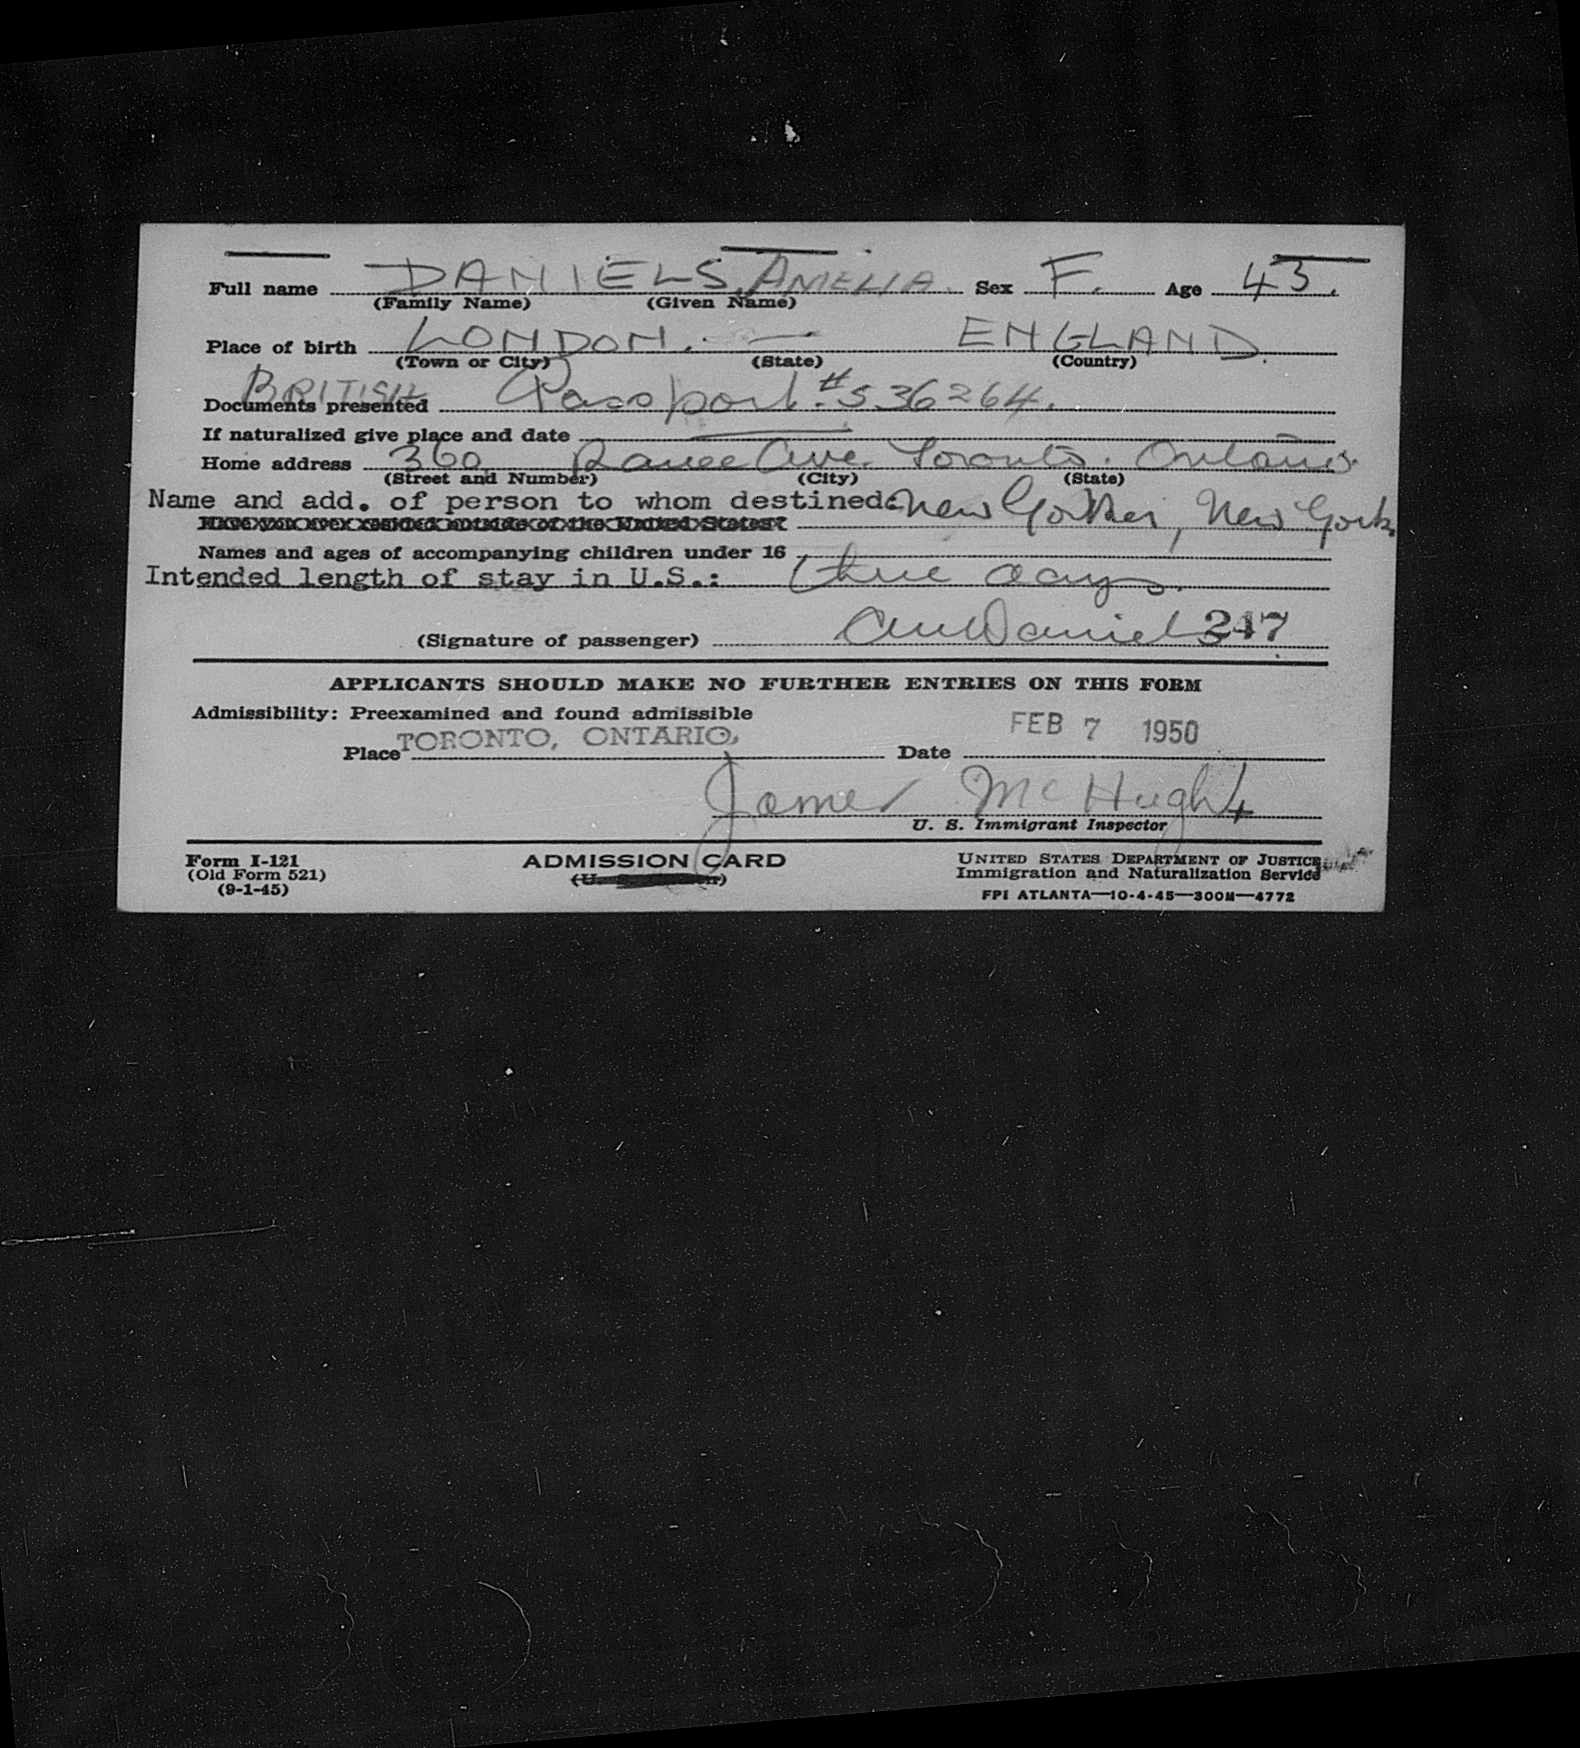 Full name DANIELS, AMELIA. Sex F. Age 43.
(Family Name) (Given Name)
Place of birth LONDON. — ENGLAND.
(Town or City) (State) (Country)
BRITISH
Documents presented Passport. #536264.
If naturalized give place and date
Home address 360 Ranee Ave. Toronto. Ontario.
(Street and Number) (City) (State)
Name and add. of person to whom destined: New Yorker, New York.
Have you ever resided outside of the United States?
Names and ages of accompanying children under 16
Intended length of stay in U.S.: three days.
(Signature of passenger) Daniels 247
APPLICANTS SHOULD MAKE NO FURTHER ENTRIES ON THIS FORM
Admissibility: Preexamined and found admissible
Place TORONTO, ONTARIO, Date FEB 7 1950
James McHugh
U. S. Immigrant Inspector
Form I-121
(Old Form 521)
(9-1-45)
ADMISSION CARD
UNITED STATES DEPARTMENT OF JUSTICE
Immigration and Naturalization Service
FPI ATLANTA—10-4-45—300M—4772